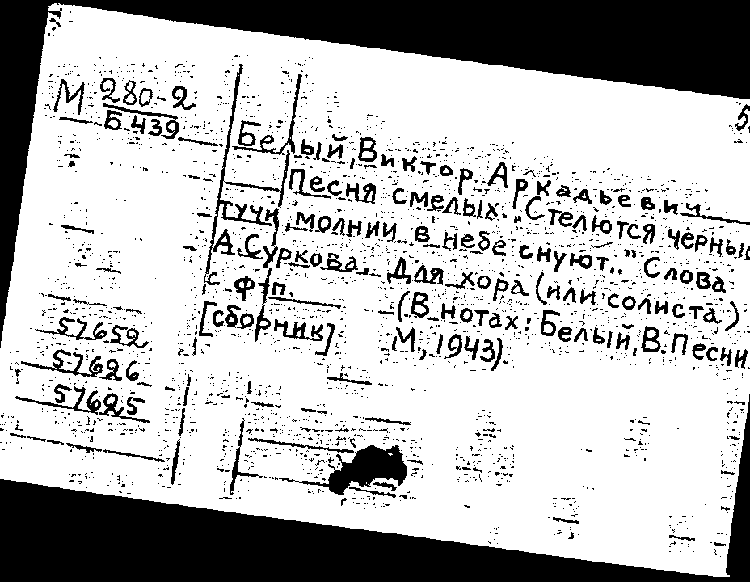 М 280-2
Б 439
5
Белый, Виктор Аркадьевич
Песня смелых. "Стелются черные
тучи, молнии в небе снуют.." Слова
А.Суркова. Для хора (или солиста)
с ф-п. (В нотах: Белый, В. Песни
[сборник]. М., 1943).
57652
57626
57625